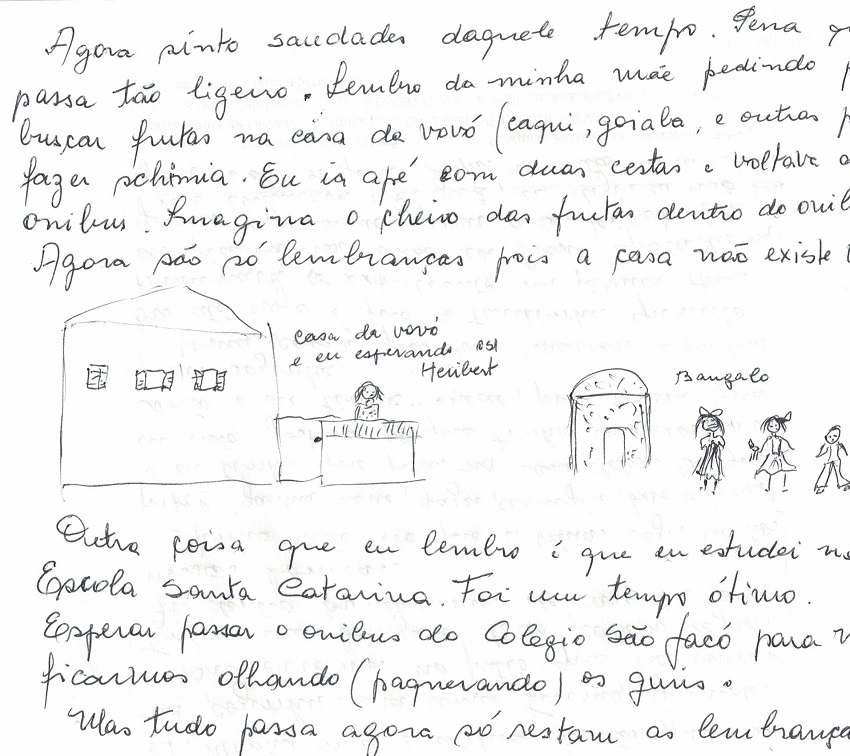 Agora sinto saudades daquele tempo. Pena
passa tão ligeiro. Lembro da minha mãe pedindo
buscar frutas na casa da vovó (caqui, goiaba, e outras
fazer schimia. Eu ia apé com duas cestas e voltava
onibus. Imagina o cheiro das frutas dentro do
Agora são só lembranças pois a casa não existe
casa da vovó
e eu esperando
Heribert
Bangalo
Outra coisa que eu lembro é que eu estudei
Escola Santa Catarina. Foi um tempo ótimo.
Esperar passar o onibus do Colegio São Jacó para
ficarmos olhando (paquerando) os guris.
Mas tudo passa agora só restam as